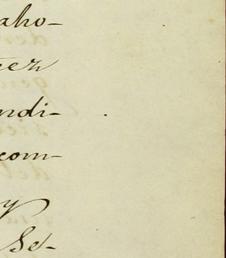 aho-
eer
ndi-
com-
y
Se-